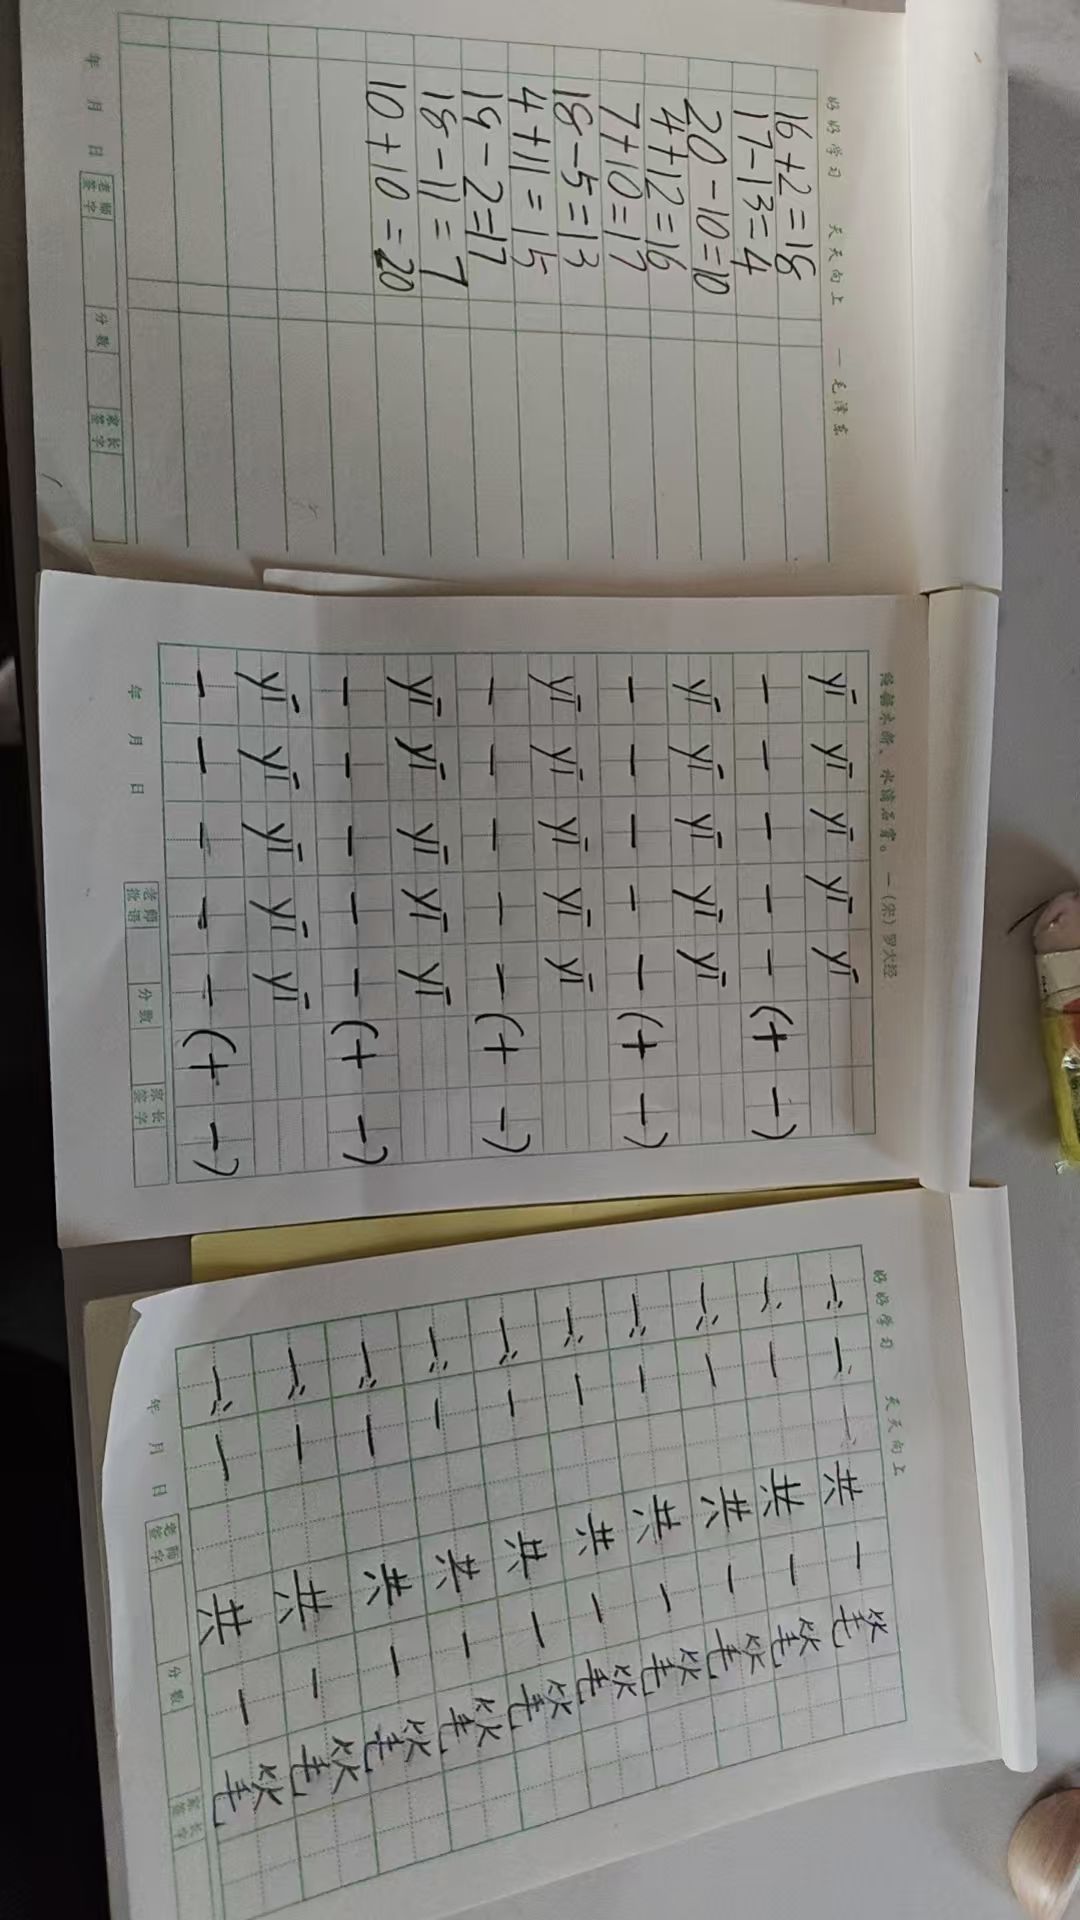 好好学习 天天向上 —毛泽东
16+2=18
17-13=4
20-10=10
4+12=16
7+10=17
18-5=13
4+11=15
19-2=17
18-11=7
10+10=20
年 月 日 老师签字 分数 家长签字
绳锯木断、水滴石穿。—(宋)罗大经
yī yī yī yī yī
一 一 一 一 一 (十 一)
yī yī yī yī yī
一 一 一 一 一 (十 一)
yī yī yī yī yī
一 一 一 一 一 (十 一)
yī yī yī yī yī
一 一 一 一 一 (十 一)
yī yī yī yī yī
一 一 一 一 一 (十 一)
年 月 日 老师批语 分数 家长签字
好好学习 天天向上
一: 一 一 共 一 笔
一: 一 共 一 笔
一: 一 共 一 笔
一: 一 共 一 笔
一: 一 共 一 笔
一: 一 共 一 笔
一: 一 共 一 笔
一: 一 共 一 笔
一: 一 共 一 笔
一: 一 共 一 笔
年 月 日 老师签字 分数 家长签字